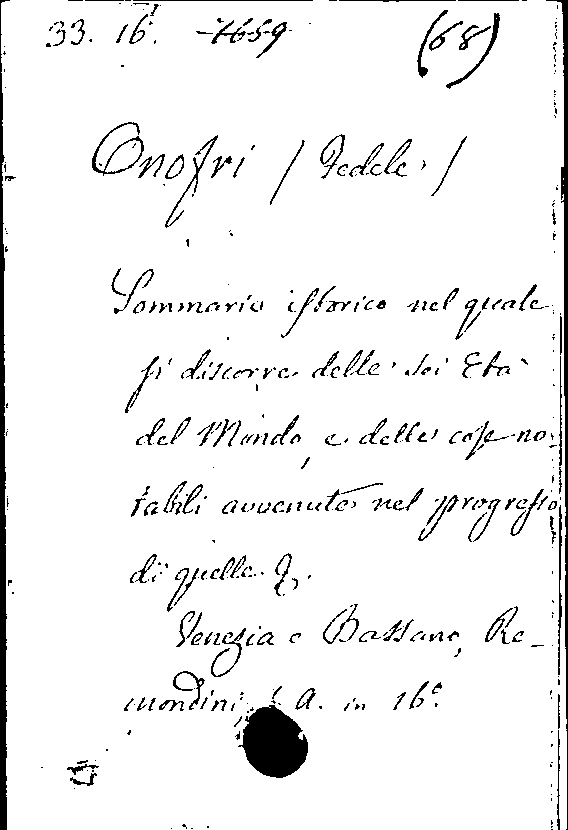 33. 16º. 7659 (68)
Onofri / Fedele /
Sommario istorico nel quale
si discorre delle sei Età
del Mondo, e delle cose no-
tabili avvenute nel progresso
di quelle &.
Venezia e Bassano, Re-
mondini, s. A. in 16º.